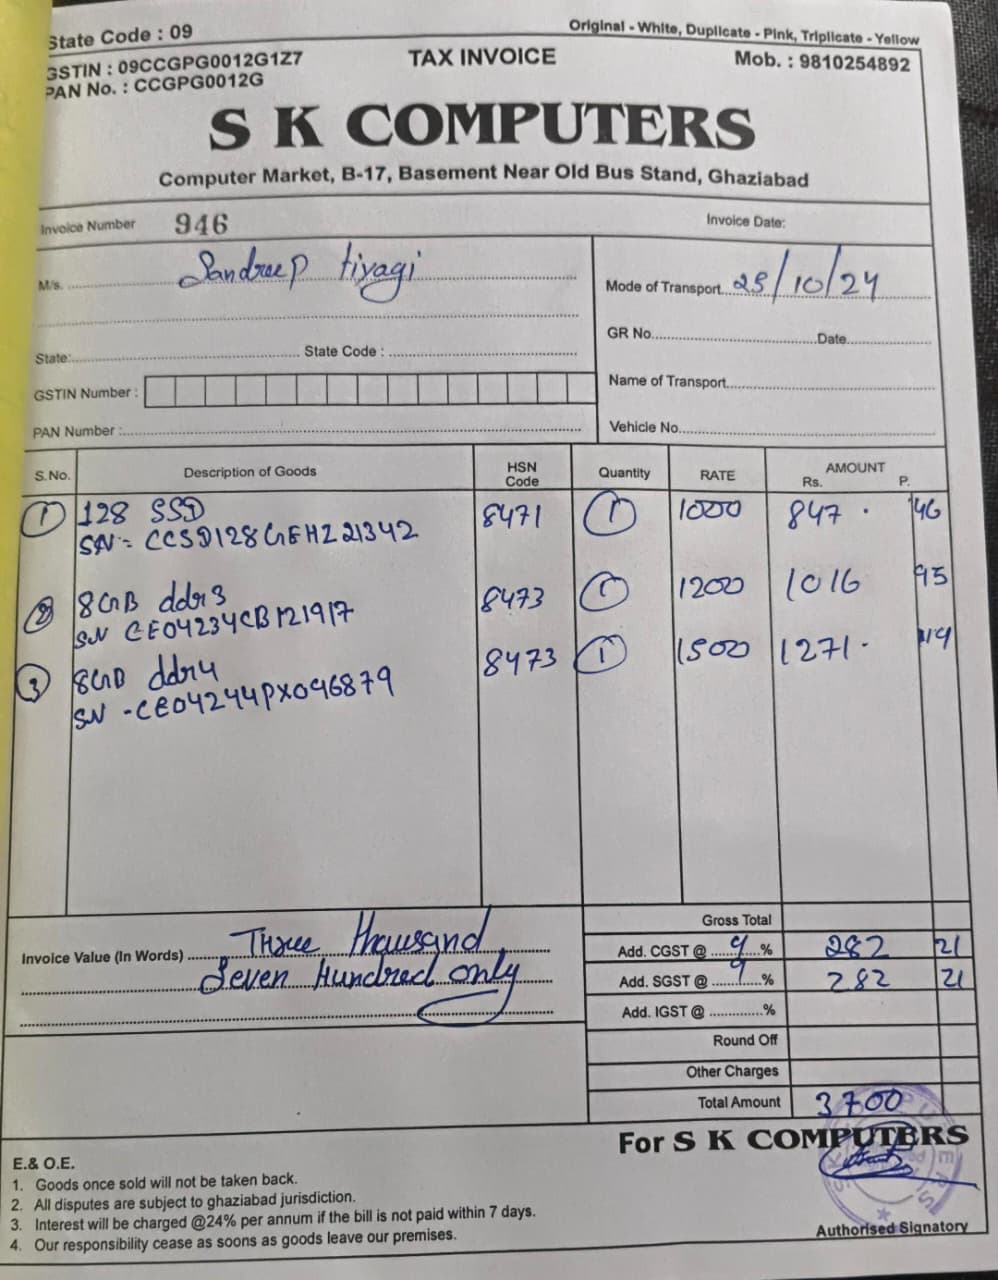 State Code : 09
Original - White, Duplicate - Pink, Triplicate - Yellow
GSTIN : 09CCGPG0012G1Z7
TAX INVOICE
Mob. : 9810254892
PAN No. : CCGPG0012G
S K COMPUTERS
Computer Market, B-17, Basement Near Old Bus Stand, Ghaziabad
Invoice Number 946
Invoice Date:
M/s. Sandreep tiyagi
Mode of Transport 25/10/24
GR No. Date
State: State Code :
Name of Transport
GSTIN Number :
PAN Number :
Vehicle No.
S.No. Description of Goods HSN Code Quantity RATE AMOUNT Rs. P.
1 128 SSD 8471 1 1000 847 . 46
SN - CCSD128GEHZ21342
2 8GB ddr3 8473 1 1200 1016 95
SN CE04234CB121917
3 8GB ddr4 8473 1 1500 1271 . 19
SN - CE04244PX046879
Gross Total
Invoice Value (In Words) Three thousand
Seven Hundred only
Add. CGST @ 9 % 282 21
Add. SGST @ 9 % 282 21
Add. IGST @ %
Round Off
Other Charges
Total Amount 3700
For S K COMPUTERS
E.& O.E.
1. Goods once sold will not be taken back.
2. All disputes are subject to ghaziabad jurisdiction.
3. Interest will be charged @24% per annum if the bill is not paid within 7 days.
4. Our responsibility cease as soons as goods leave our premises.
Authorised Signatory